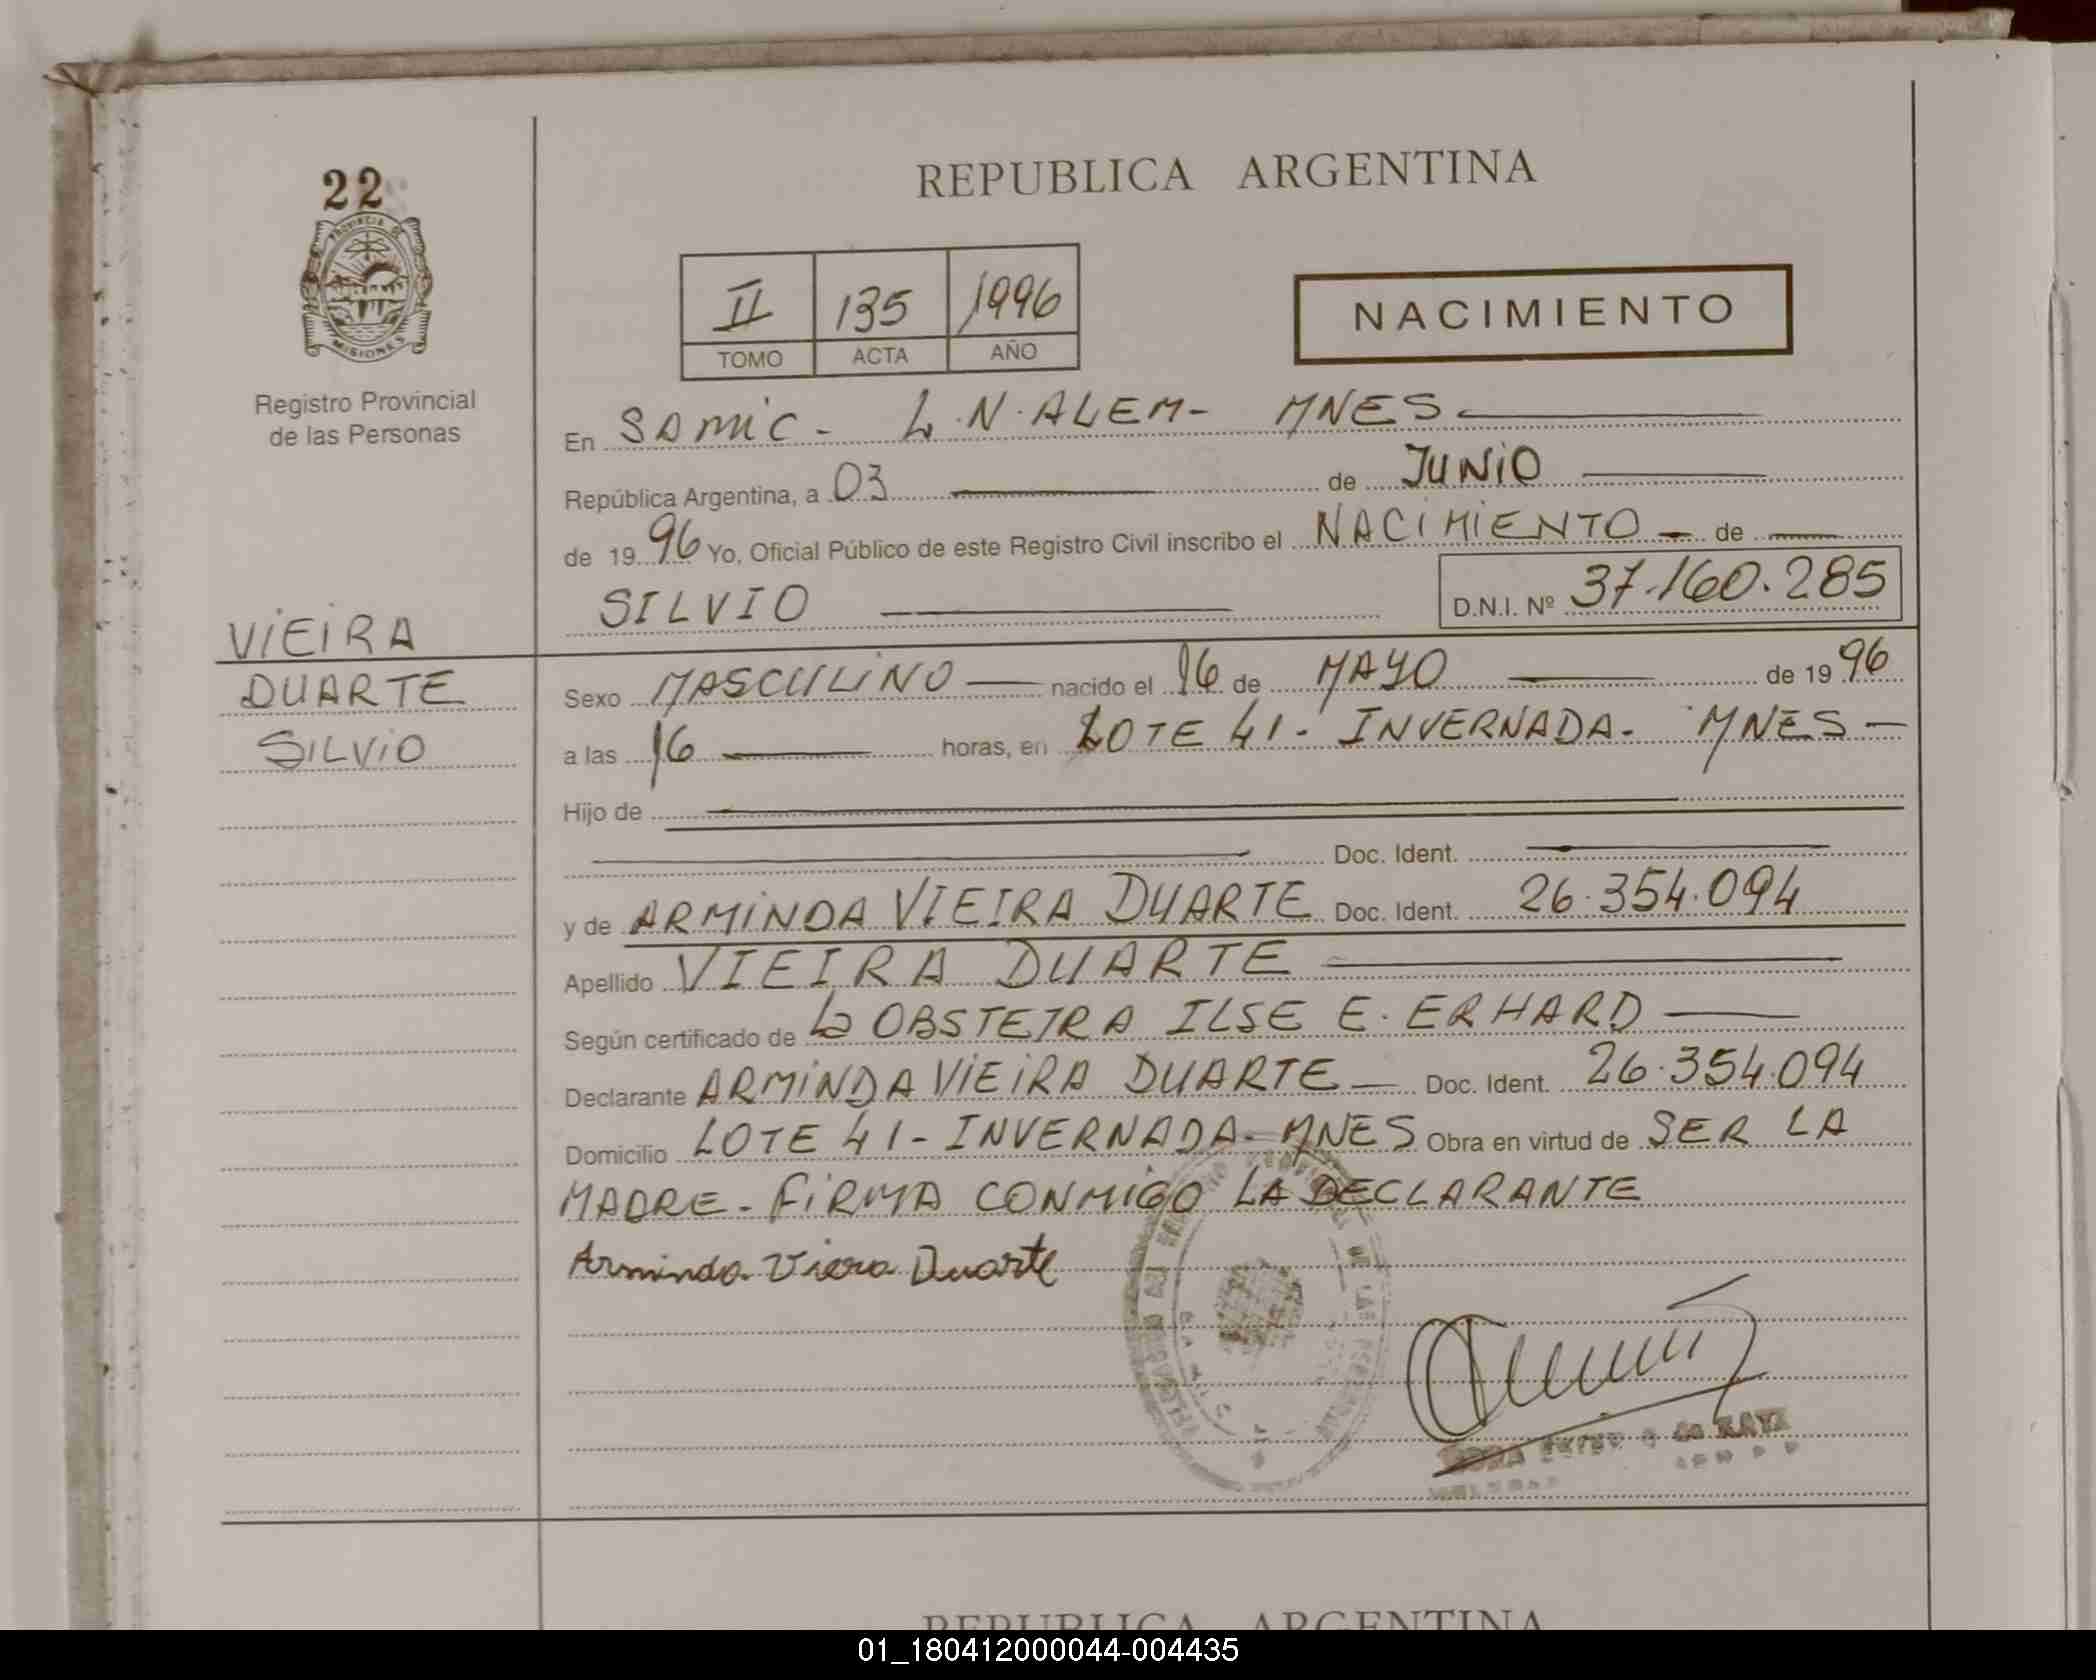 22
PROVINCIA DE
MISIONES
Registro Provincial
de las Personas
VIEIRA
DUARTE
SILVIO
REPUBLICA ARGENTINA
II 135 1996
TOMO ACTA AÑO
NACIMIENTO
En SAMIC - L.N. ALEM - MNES
República Argentina, a 03 de JUNIO
de 1996 Yo, Oficial Público de este Registro Civil inscribo el NACIMIENTO - de
SILVIO D.N.I. Nº 37.160.285
Sexo MASCULINO nacido el 16 de MAYO de 1996
a las 16 horas, en LOTE 41 - INVERNADA - MNES -
Hijo de
Doc. Ident.
y de ARMINDA VIEIRA DUARTE Doc. Ident. 26.354.094
Apellido VIEIRA DUARTE
Según certificado de La OBSTETRA ILSE E. ERHARD
Declarante ARMINDA VIEIRA DUARTE - Doc. Ident. 26.354.094
Domicilio LOTE 41 - INVERNADA - MNES Obra en virtud de SER LA
MADRE - FIRMA CONMIGO LA DECLARANTE
Arminda Viera Duarte
REPUBLICA ARGENTINA
01_180412000044-004435